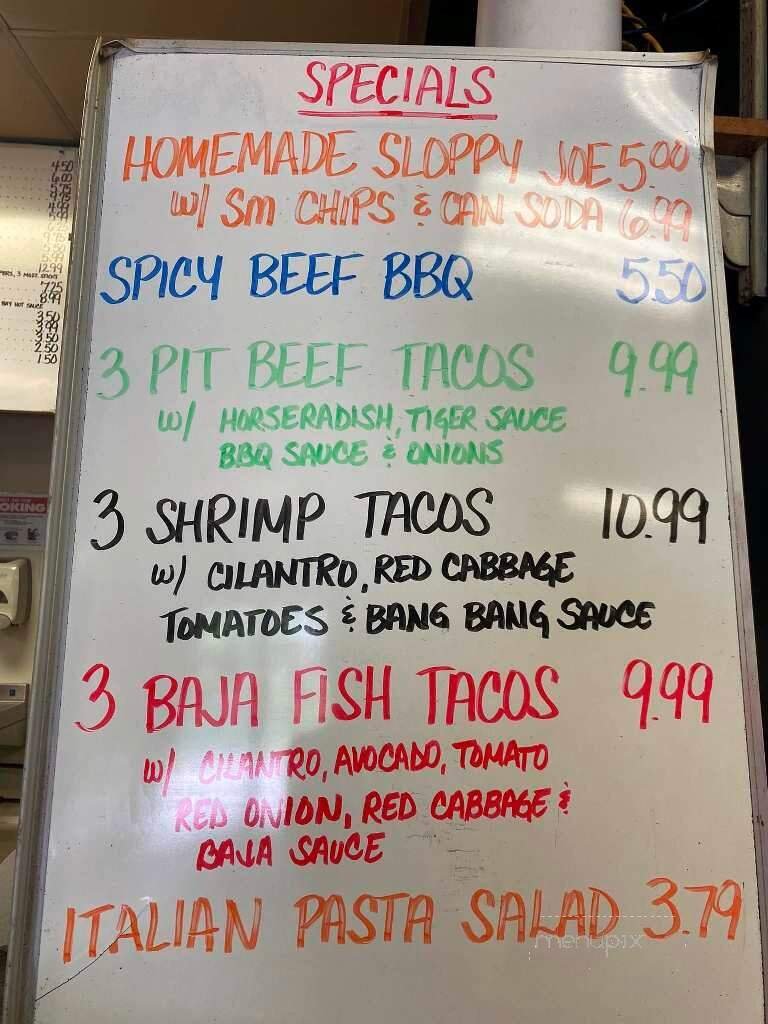 SPECIALS
HOMEMADE SLOPPY JOE 5.00
w/ Sm CHIPS & CAN SODA 6.99
SPICY BEEF BBQ 5.50
3 PIT BEEF TACOS 9.99
w/ HORSERADISH, TIGER SAUCE
BBQ SAUCE & ONIONS
3 SHRIMP TACOS 10.99
w/ CILANTRO, RED CABBAGE
TOMATOES & BANG BANG SAUCE
3 BAJA FISH TACOS 9.99
w/ CILANTRO, AVOCADO, TOMATO
RED ONION, RED CABBAGE &
BAJA SAUCE
ITALIAN PASTA SALAD 3.79
menupix
12.99
7.25
8.99
3.50
3.99
3.50
2.50
1.50
OKING